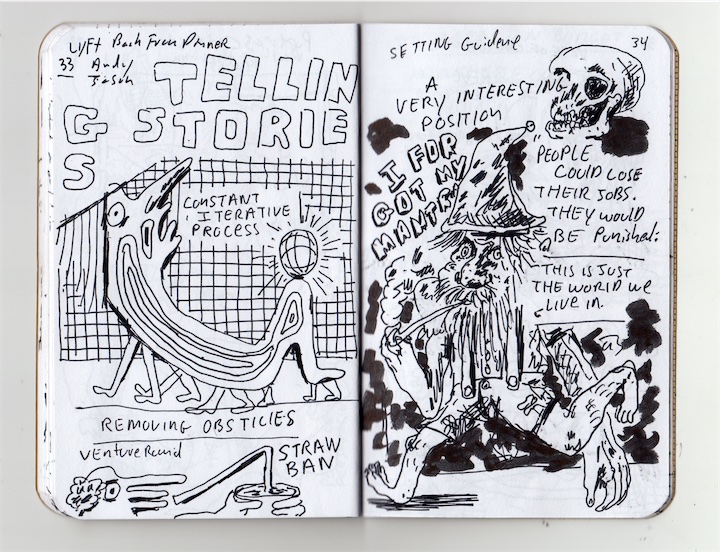 Lyft Back From Dinner
33 Andy
Jason
TELLIN
G STORIE
S
CONSTANT
ITERATIVE
PROCESS
REMOVING OBSTICLES
Venture Round
STRAW
BAN
SETTING Guidene
34
A
VERY INTERESTING
POSITION
I FOR
GOT MY
MANTRA
"PEOPLE
COULD LOSE
THEIR JOBS.
THEY WOULD
BE Punished."
"THIS IS JUST
THE WORLD WE
LIVE IN.